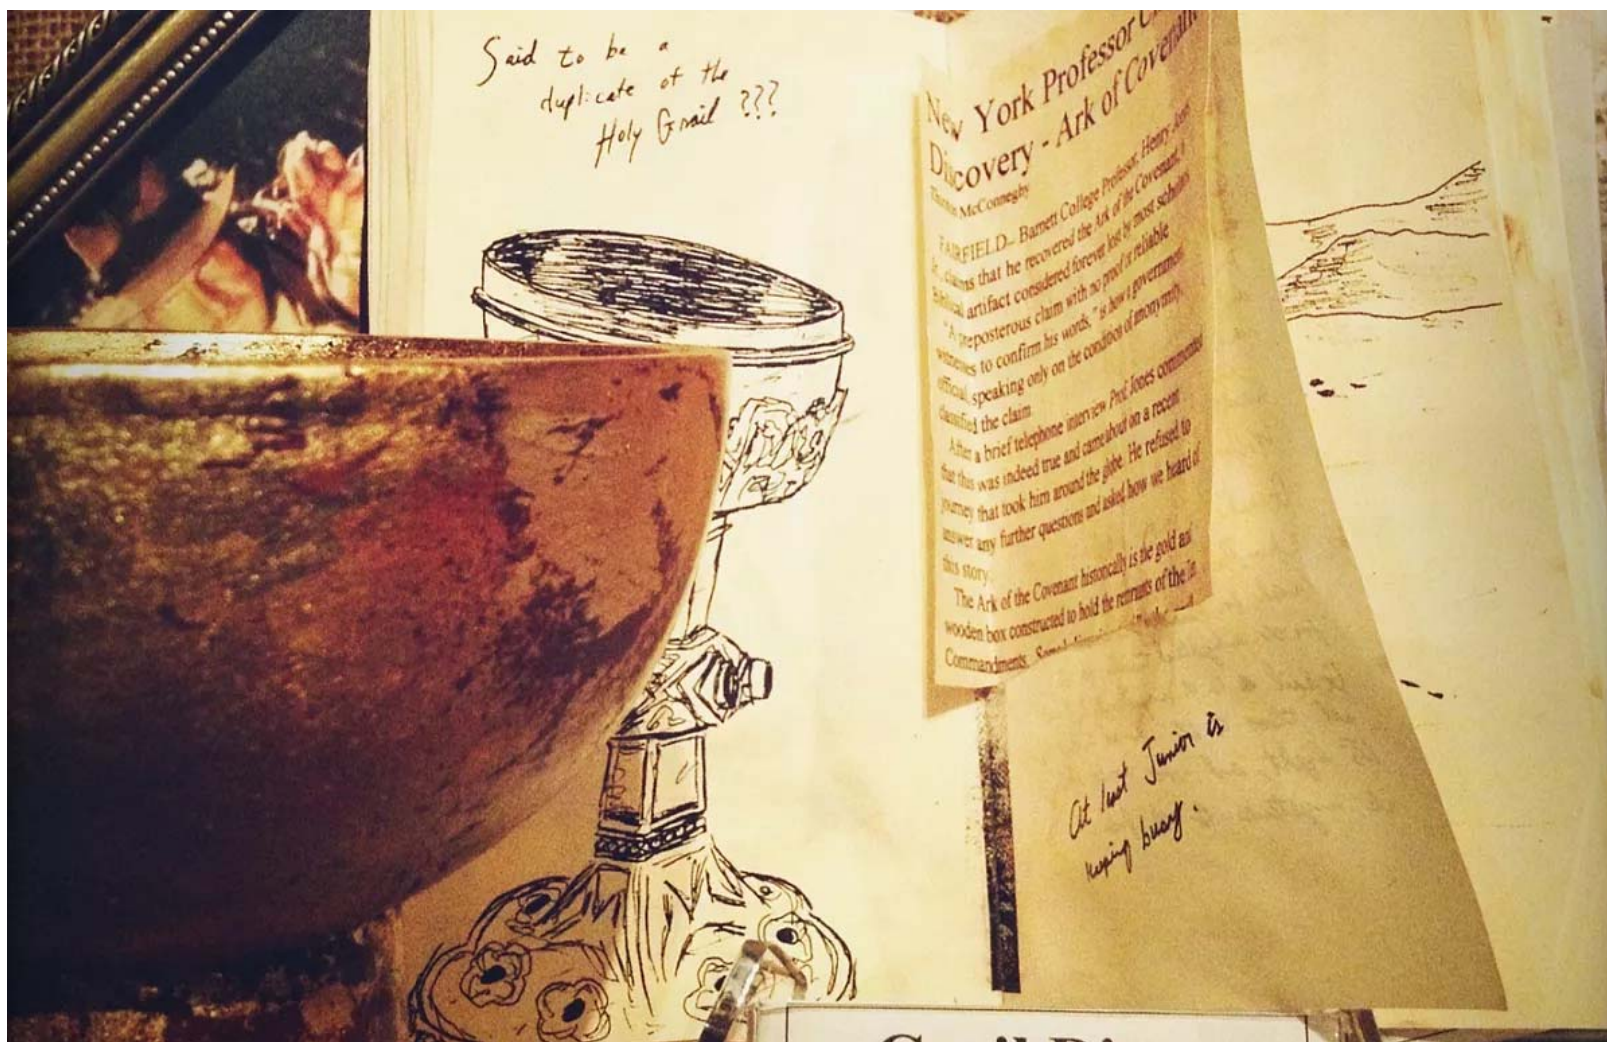 Said to be a
duplicate of the
Holy Grail ???
New York Professor
Discovery - Ark of Covenant
McConnegby
FAIRFIELD-- Barnett College Professor, Henry Jones
Jr., claims that he recovered the Ark of the Covenant,
Biblical artifact considered forever lost by most scholars.
"A preposterous claim with no proof or reliable
witnesses to confirm his words," is how a government
official, speaking only on the condition of anonymity,
classified the claim.
After a brief telephone interview Prof. Jones commented
that this was indeed true and came about on a recent
journey that took him around the globe. He refused to
answer any further questions and asked how we heard of
this story.
The Ark of the Covenant historically is the gold and
wooden box constructed to hold the remnants of the
Commandments.
At least Junior is
keeping busy.